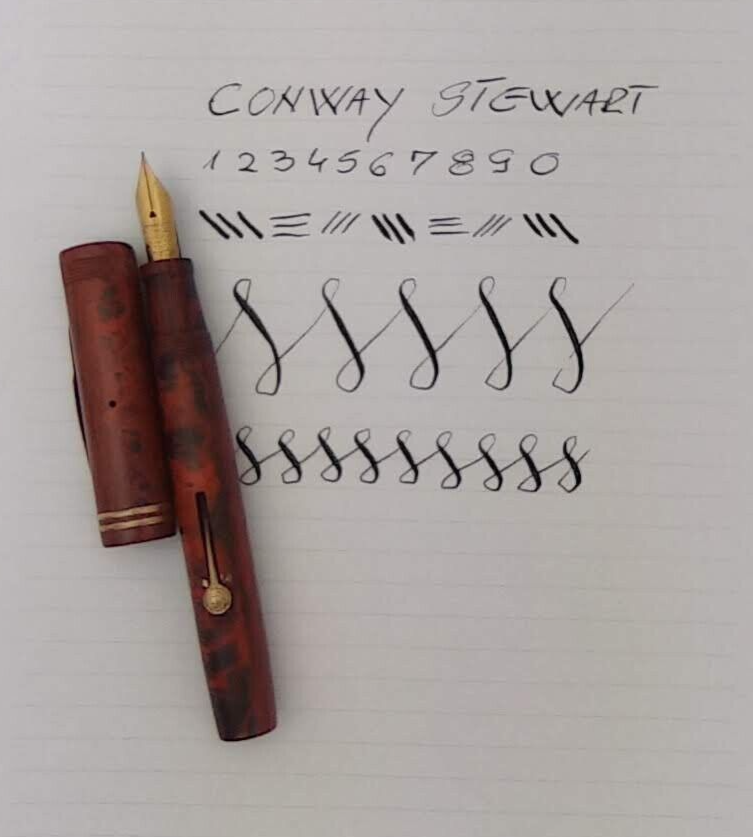 CONWAY STEWART
1 2 3 4 5 6 7 8 9 0